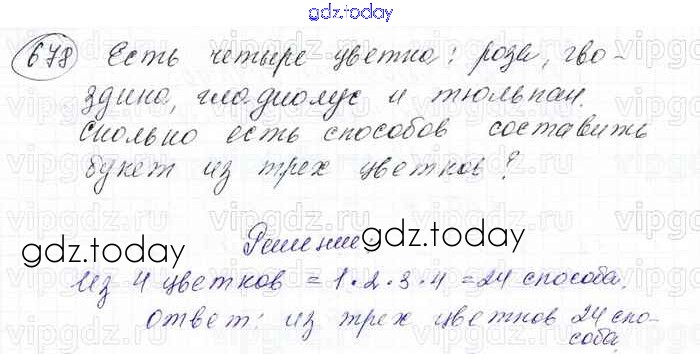 gdz.today
678 Есть четыре цветка: роза, гво-
здика, гладиолус и тюльпан.
Сколько есть способов составить
букет из трех цветков?
Решение:
gdz.today
gdz.today
Из 4 цветков = 1·2·3·4 = 24 способа.
ответ: из трех цветков 24 спо-
соба